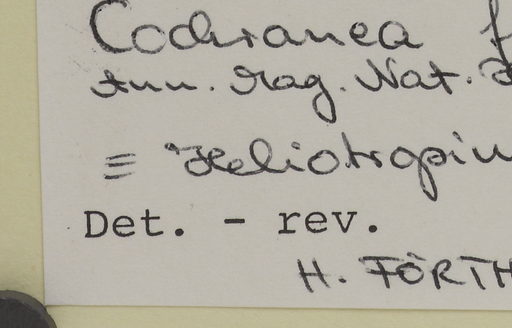 Cochranea f
Ann. Mag. Nat.
≡ Heliotropiu
Det. - rev.
H. FÖRTH